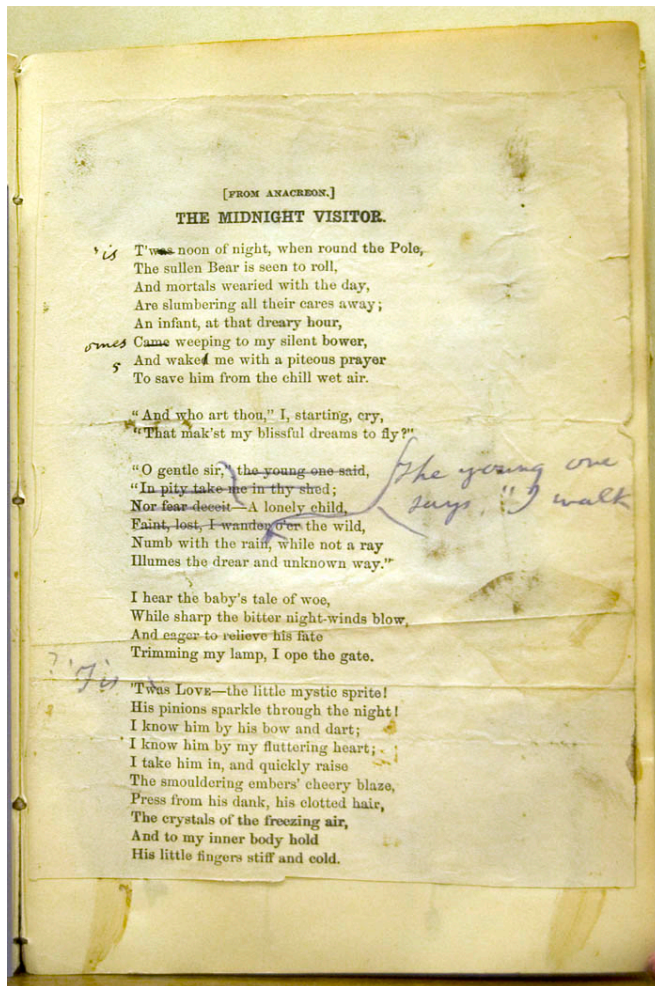 [FROM ANACREON.]
THE MIDNIGHT VISITOR.
'is T'was noon of night, when round the Pole,
The sullen Bear is seen to roll,
And mortals wearied with the day,
Are slumbering all their cares away;
An infant, at that dreary hour,
omes Came weeping to my silent bower,
s And waked me with a piteous prayer
To save him from the chill wet air.
"And who art thou," I, starting, cry,
"That mak'st my blissful dreams to fly?"
"O gentle sir," the young one said,
"In pity take me in thy shed;
Nor fear deceit—A lonely child,
Faint, lost, I wander o'er the wild,
Numb with the rain, while not a ray
Illumes the drear and unknown way."
The young one
says, "I walk
I hear the baby's tale of woe,
While sharp the bitter night-winds blow,
And eager to relieve his fate
Trimming my lamp, I ope the gate.
? 'Tis 'Twas LOVE—the little mystic sprite!
His pinions sparkle through the night!
I know him by his bow and dart;
I know him by my fluttering heart;
I take him in, and quickly raise
The smouldering embers' cheery blaze,
Press from his dank, his clotted hair,
The crystals of the freezing air,
And to my inner body hold
His little fingers stiff and cold.